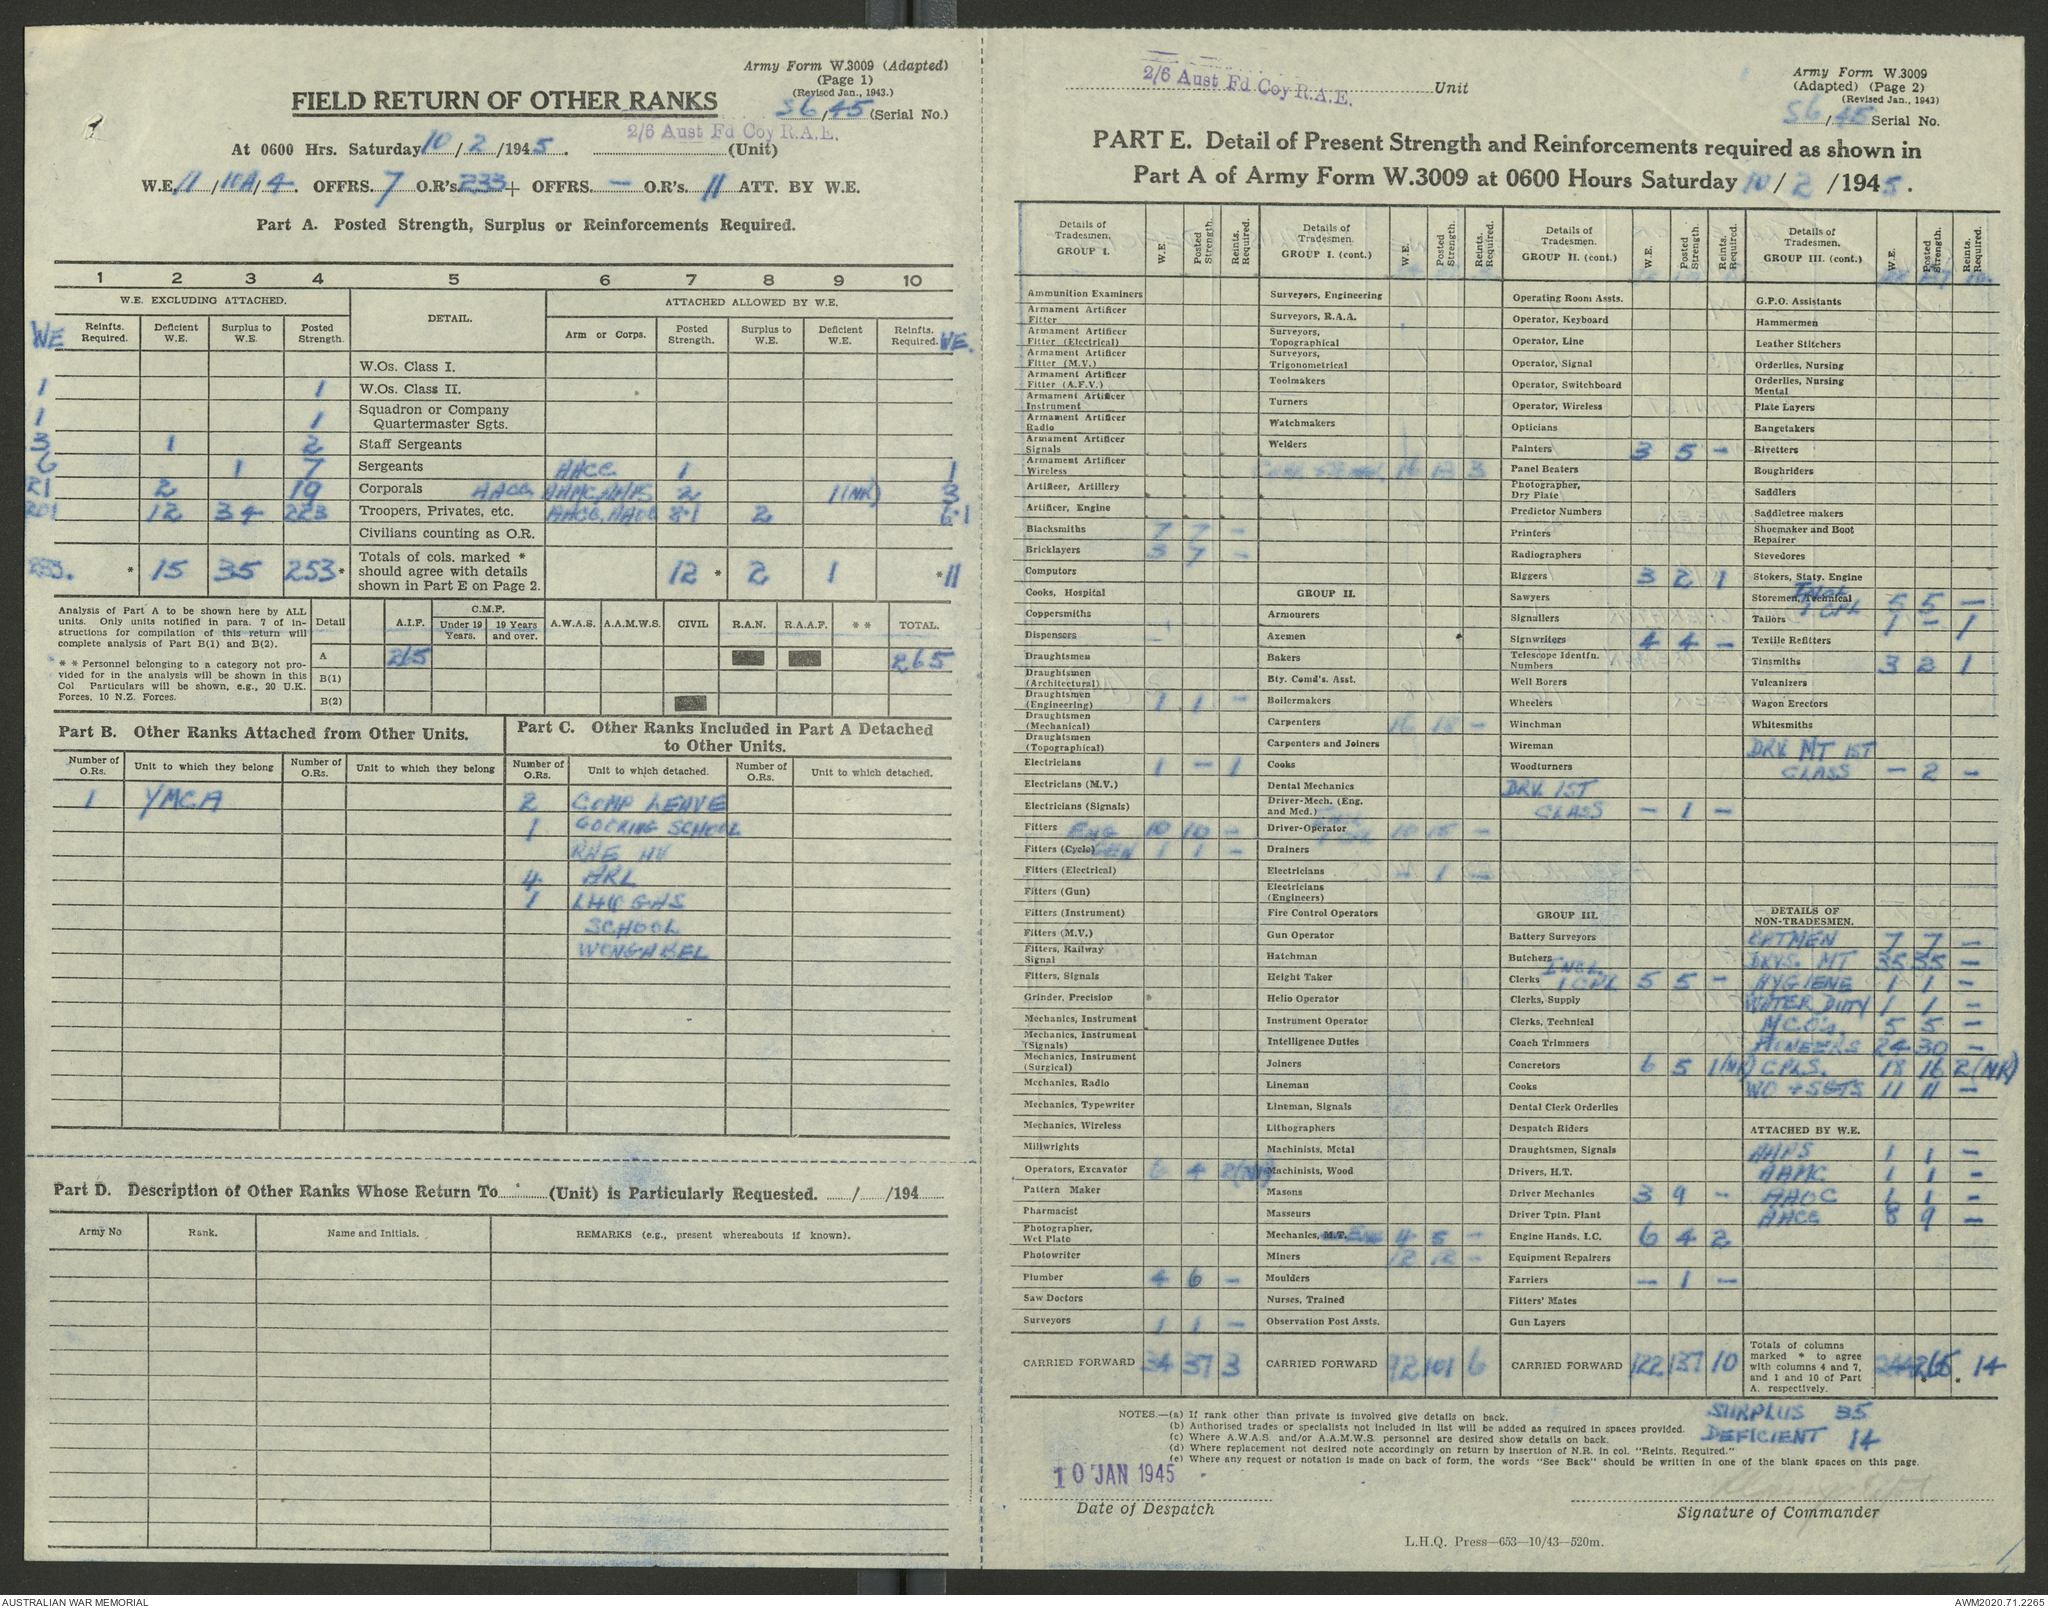 Army Form W.3009 (Adapted)
(Page 1)
(Revised Jan., 1943.)
FIELD RETURN OF OTHER RANKS
56/45 (Serial No.)
2/6 Aust Fd Coy R.A.E.
At 0600 Hrs. Saturday 10/2/1945. (Unit)
W.E. 11/10A/4. OFFRS. 7 O.R's 233 + OFFRS. — O.R's. 11 ATT. BY W.E.
Part A. Posted Strength, Surplus or Reinforcements Required.
1 2 3 4 5 6 7 8 9 10
W.E. EXCLUDING ATTACHED. DETAIL. ATTACHED ALLOWED BY W.E.
WE Reinfts. Required. Deficient W.E. Surplus to W.E. Posted Strength. Arm or Corps. Posted Strength. Surplus to W.E. Deficient W.E. Reinfts. Required. WE.
W.Os. Class I.
1 1 W.Os. Class II.
1 1 Squadron or Company Quartermaster Sgts.
3 1 2 Staff Sergeants
6 1 7 Sergeants AACC 1 1
21 2 19 Corporals AACC AAMC, AAPS 2 1(NR) 3
201 12 34 223 Troopers, Privates, etc. AACC, AAOC 2
Civilians counting as O.R.
233. * 15 35 253 * Totals of cols. marked * should agree with details shown in Part E on Page 2. 12 * 2 1 * 11
Analysis of Part A to be shown here by ALL units. Only units notified in para. 7 of instructions for compilation of this return will complete analysis of Part B(1) and B(2).
* * Personnel belonging to a category not provided for in the analysis will be shown in this Col Particulars will be shown, e.g., 20 U.K. Forces, 10 N.Z. Forces.
Detail A.I.F. C.M.F. Under 19 Years. 19 Years and over. A.W.A.S. A.A.M.W.S. CIVIL R.A.N. R.A.A.F. * * TOTAL.
A 265 265
B(1)
B(2)
Part B. Other Ranks Attached from Other Units.
Part C. Other Ranks Included in Part A Detached to Other Units.
Number of O.Rs. Unit to which they belong Number of O.Rs. Unit to which they belong Number of O.Rs. Unit to which detached. Number of O.Rs. Unit to which detached.
1 YMCA 2 COMP LEAVE
1 COOKING SCHOOL
RAE
4 ARL
1 LHQ GAS
SCHOOL
WONGABEL
Part D. Description of Other Ranks Whose Return To (Unit) is Particularly Requested. / /194
Army No Rank. Name and Initials. REMARKS (e.g., present whereabouts if known).
2/6 Aust Fd Coy R.A.E. Unit
Army Form W.3009
(Adapted) (Page 2)
(Revised Jan., 1943)
56/45 Serial No.
PART E. Detail of Present Strength and Reinforcements required as shown in
Part A of Army Form W.3009 at 0600 Hours Saturday 10/2/1945.
Details of Tradesmen. GROUP I. W.E. Posted Strength. Reints. Required.
Ammunition Examiners
Armament Artificer Fitter
Armament Artificer Fitter (Electrical)
Armament Artificer Fitter (M.V.)
Armament Artificer Fitter (A.F.V.)
Armament Artificer Instrument
Armament Artificer Radio
Armament Artificer Signals
Armament Artificer Wireless
Artificer, Artillery
Artificer, Engine
Blacksmiths 7 7 —
Bricklayers 3 7 —
Computors
Cooks, Hospital
Coppersmiths
Dispensers
Draughtsmen
Draughtsmen (Architectural)
Draughtsmen (Engineering) 1 1 —
Draughtsmen (Mechanical)
Draughtsmen (Topographical)
Electricians 1 — 1
Electricians (M.V.)
Electricians (Signals)
Fitters ENG 10 10 —
Fitters (Cycle) GEN 1 1 —
Fitters (Electrical)
Fitters (Gun)
Fitters (Instrument)
Fitters (M.V.)
Fitters, Railway Signal
Fitters, Signals
Grinder, Precision
Mechanics, Instrument
Mechanics, Instrument (Signals)
Mechanics, Instrument (Surgical)
Mechanics, Radio
Mechanics, Typewriter
Mechanics, Wireless
Millwrights
Operators, Excavator 6 4 2(NR)
Pattern Maker
Pharmacist
Photographer, Wet Plate
Photowriter
Plumber 4 6 —
Saw Doctors
Surveyors 1 1 —
CARRIED FORWARD 34 37 3
Details of Tradesmen. GROUP I. (cont.) W.E. Posted Strength. Reints. Required.
Surveyors, Engineering
Surveyors, R.A.A.
Surveyors, Topographical
Surveyors, Trigonometrical
Toolmakers
Turners
Watchmakers
Welders
16 13 3
GROUP II.
Armourers
Axemen
Bakers
Bty. Comd's. Asst.
Boilermakers
Carpenters 16 18 —
Carpenters and Joiners
Cooks
Dental Mechanics
Driver-Mech. (Eng. and Med.)
Driver-Operator 10 15 —
Drainers
Electricians — 1 —
Electricians (Engineers)
Fire Control Operators
Gun Operator
Hatchman
Height Taker
Helio Operator
Instrument Operator
Intelligence Duties
Joiners
Lineman
Lineman, Signals
Lithographers
Machinists, Metal
Machinists, Wood
Masons
Masseurs
Mechanics, M.T. 4 5 —
Miners 12 12 —
Moulders
Nurses, Trained
Observation Post Assts.
CARRIED FORWARD 92 101 6
Details of Tradesmen. GROUP II. (cont) W.E. Posted Strength. Reints. Required.
Operating Room Assts.
Operator, Keyboard
Operator, Line
Operator, Signal
Operator, Switchboard
Operator, Wireless
Opticians
Painters 3 5 —
Panel Beaters
Photographer, Dry Plate
Predictor Numbers
Printers
Radiographers
Riggers 3 2 1
Sawyers
Signallers
Signwriters 4 4 —
Telescope Identfn. Numbers
Well Borers
Wheelers
Winchman
Wireman
Woodturners
DRV. 1ST
CLASS — 1 —
GROUP III.
Battery Surveyors
Butchers
Clerks INCL. 1 CPL 5 5 —
Clerks, Supply
Clerks, Technical
Coach Trimmers
Concretors 6 5 1(NR)
Cooks
Dental Clerk Orderlies
Despatch Riders
Draughtsmen, Signals
Drivers, H.T.
Driver Mechanics 3 9 —
Driver Tptn. Plant
Engine Hands, I.C. 6 4 2
Equipment Repairers
Farriers — 1 —
Fitters' Mates
Gun Layers
CARRIED FORWARD 122 137 10
Details of Tradesmen. GROUP III. (cont.) W.E. Posted Strength. Reints. Required.
G.P.O. Assistants
Hammermen
Leather Stitchers
Orderlies, Nursing
Orderlies, Nursing Mental
Plate Layers
Rangetakers
Rivetters
Roughriders
Saddlers
Saddletree makers
Shoemaker and Boot Repairer
Stevedores
Stokers, Staty. Engine
Storemen, Technical INCL 1 CPL 5 5 —
Tailors 1 — 1
Textile Refitters
Tinsmiths 3 2 1
Vulcanizers
Wagon Erectors
Whitesmiths
DRV. MT 1ST
CLASS — 2 —
DETAILS OF NON-TRADESMEN.
BATMEN 7 7 —
DRVS. MT 35 35 —
HYGIENE 1 1 —
WATER DUTY 1 1 —
5 5 —
PIONEERS 24 30 —
CPLS. 18 16 2(NR)
WO + SGTS 11 11 —
ATTACHED BY W.E.
AAPS 1 1 —
AAMC 1 1 —
AAOC 1 1 —
AACC 8 9 —
Totals of columns marked * to agree with columns 4 and 7, and 1 and 10 of Part A. respectively. 244 265 * * 14
NOTES.—(a) If rank other than private is involved give details on back.
(b) Authorised trades or specialists not included in list will be added as required in spaces provided.
(c) Where A.W.A.S. and/or A.A.M.W.S. personnel are desired show details on back.
(d) Where replacement not desired note accordingly on return by insertion of N.R. in col. "Reints. Required."
(e) Where any request or notation is made on back of form, the words "See Back" should be written in one of the blank spaces on this page.
SURPLUS 35
DEFICIENT 14
10 JAN 1945
Date of Despatch
Signature of Commander
L.H.Q. Press—653—10/43—520m.
AUSTRALIAN WAR MEMORIAL
AWM2020.71.2265